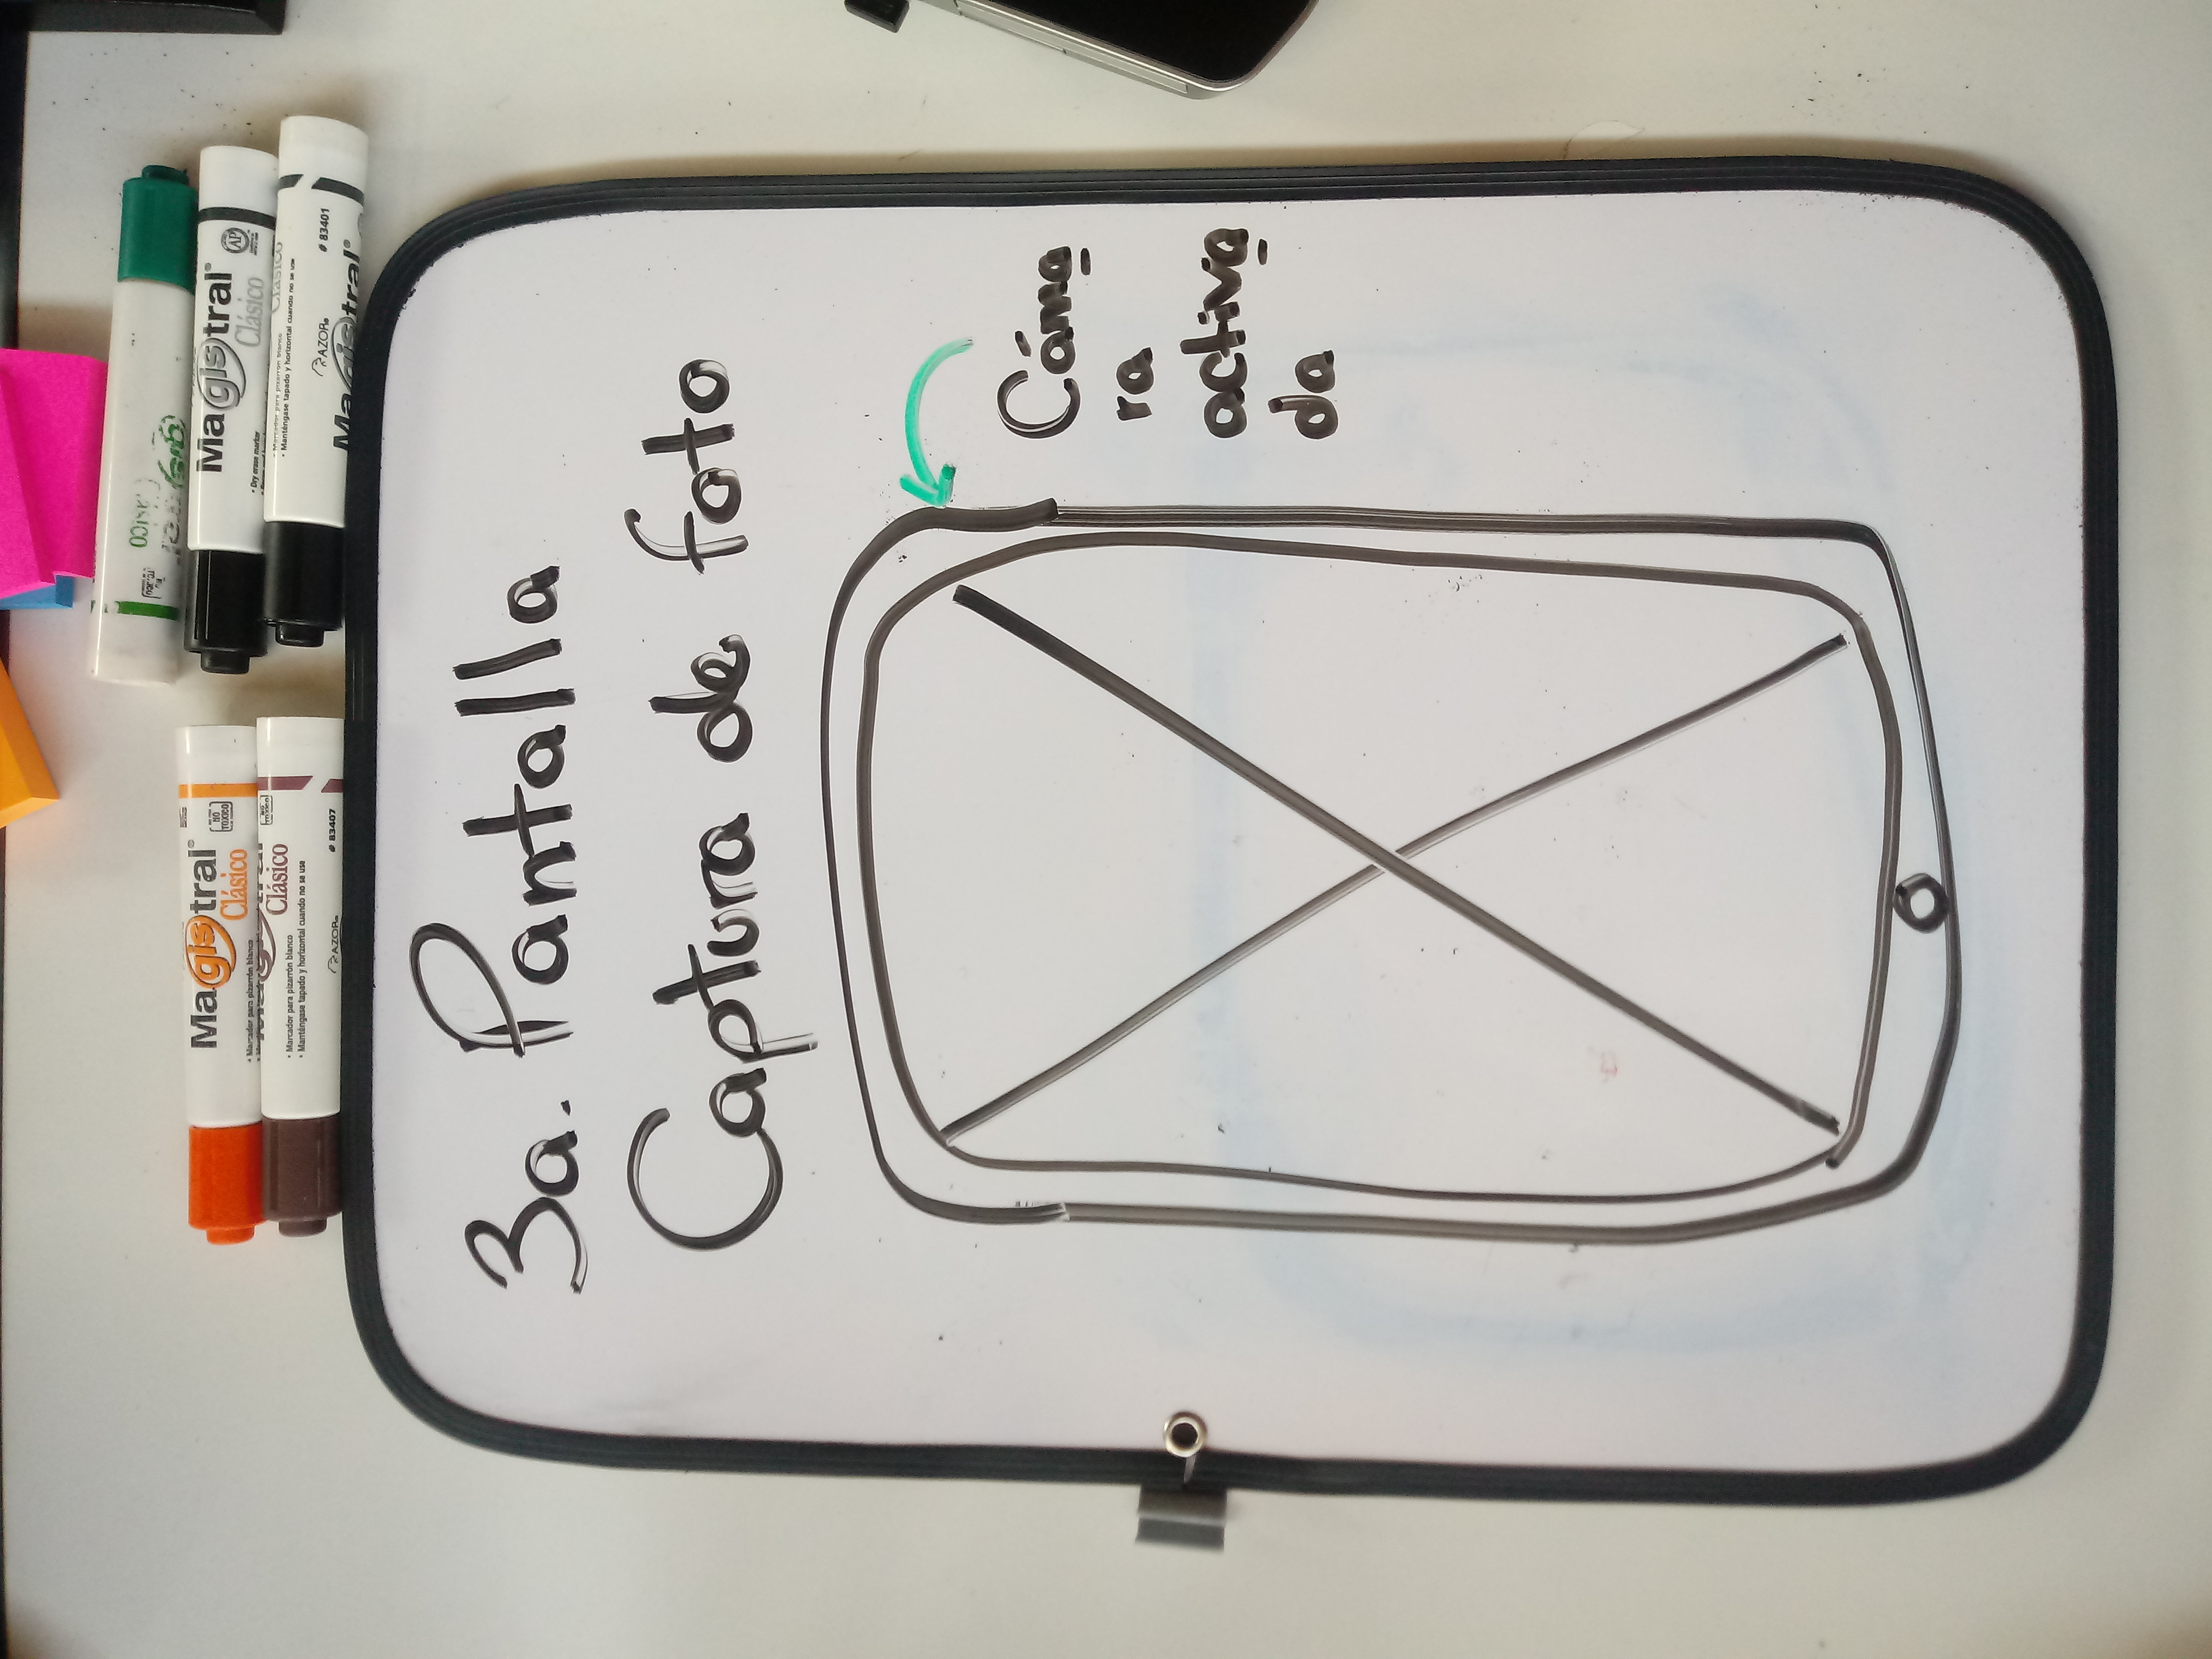 Magistral®
Clásico
NO TOXICO
• Marcador para pizarrón blanco
Clásico
NO TOXICO
• Marcador para pizarrón blanco
• Manténgase tapado y horizontal cuando no se use
AZOR®
# 83407
Magistral®
Clásico
AP
• Dry erase marker
Clásico
• Marcador para pizarrón blanco
• Manténgase tapado y horizontal cuando no se use
AZOR®
# 83401
Magistral®
3a. Pantalla
Captura de foto
Cáma
ra
activa
da